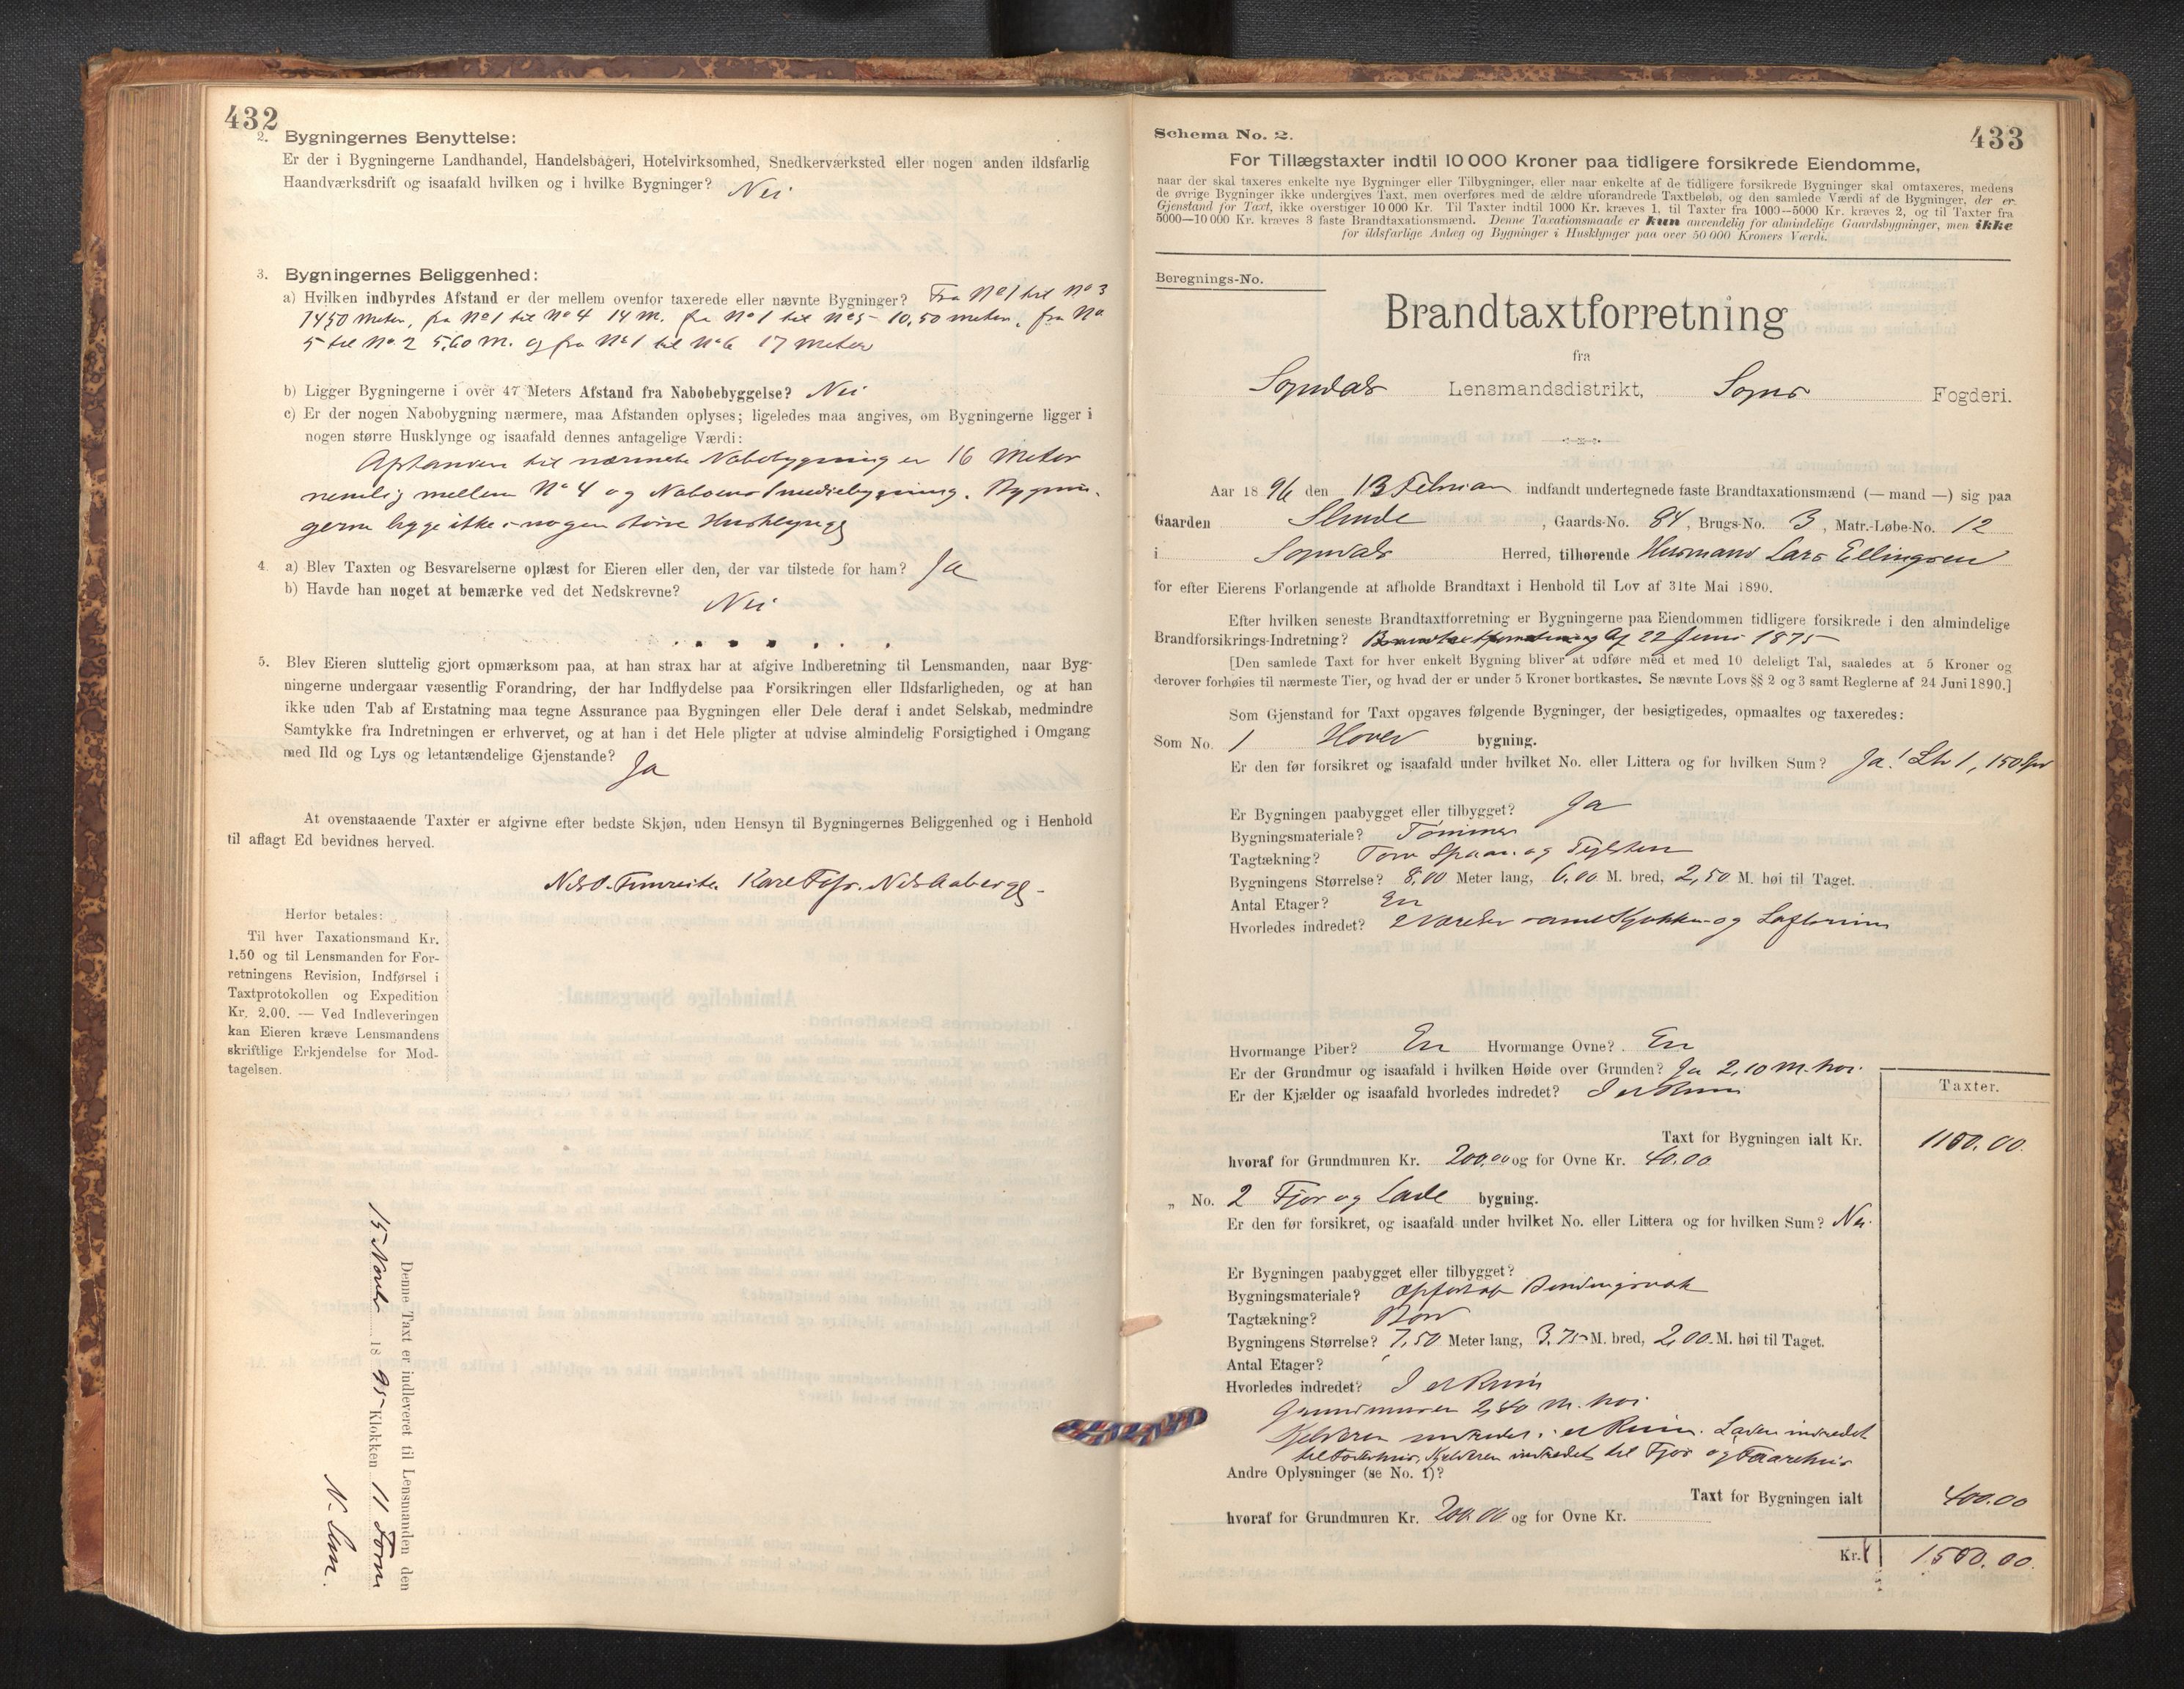 432
2. Bygningernes Benyttelse:
Er der i Bygningerne Landhandel, Handelsbageri, Hotelvirksomhed, Snedkerværksted eller nogen anden ildsfarlig
Haandværksdrift og isaafald hvilken og i hvilke Bygninger? Nei
3. Bygningernes Beliggenhed:
a) Hvilken indbyrdes Afstand er der mellem ovenfor taxerede eller nævnte Bygninger? Fra No 1 til No 3
1450 Meter, fra No 1 til No 4 14 M. fra No 1 til No 5 10,50 meter, fra No
5 til No. 2 5,60 M. og fra No 1 til No 6 17 Meter
b) Ligger Bygningerne i over 47 Meters Afstand fra Nabobebyggelse? Nei
c) Er der nogen Nabobygning nærmere, maa Afstanden oplyses; ligeledes maa angives, om Bygningerne ligger i
nogen større Husklynge og isaafald dennes antagelige Værdi:
Afstanden til nærmeste Nabobygning er 16 Meter
nemlig mellem No 4 og Naboens Smediebygning. Bygnin-
gerne ligge ikke i nogen større Husklynge
4. a) Blev Taxten og Besvarelserne oplæst for Eieren eller den, der var tilstede for ham? Ja
b) Havde han noget at bemærke ved det Nedskrevne? Nei
5. Blev Eieren sluttelig gjort opmærksom paa, at han strax har at afgive Indberetning til Lensmanden, naar Byg-
ningerne undergaar væsentlig Forandring, der har Indflydelse paa Forsikringen eller Ildsfarligheden, og at han
ikke uden Tab af Erstatning maa tegne Assurance paa Bygningen eller Dele deraf i andet Selskab, medmindre
Samtykke fra Indretningen er erhvervet, og at han i det Hele pligter at udvise almindelig Forsigtighed i Omgang
med Ild og Lys og letantændelige Gjenstande? Ja
At ovenstaaende Taxter er afgivne efter bedste Skjøn, uden Hensyn til Bygningernes Beliggenhed og i Henhold
til aflagt Ed bevidnes herved.
Nils O. Fimreite. Nils Aaberge
Herfor betales:
Til hver Taxationsmand Kr.
1.50 og til Lensmanden for For-
retningens Revision, Indførsel i
Taxtprotokollen og Expedition
Kr. 2.00. — Ved Indleveringen
kan Eieren kræve Lensmandens
skriftlige Erkjendelse for Mod-
tagelsen.
Denne Taxt er indleveret til Lensmanden den
15 Novbr 1895 Klokken 11 Form
433
Schema No. 2.
For Tillægstaxter indtil 10 000 Kroner paa tidligere forsikrede Eiendomme,
naar der skal taxeres enkelte nye Bygninger eller Tilbygninger, eller naar enkelte af de tidligere forsikrede Bygninger skal omtaxeres, medens
de øvrige Bygninger ikke undergives Taxt, men overføres med de ældre uforandrede Taxtbeløb, og den samlede Værdi af de Bygninger, der er
Gjenstand for Taxt, ikke overstiger 10 000 Kr. Til Taxter indtil 1000 Kr. kræves 1, til Taxter fra 1000—5000 Kr. kræves 2, og til Taxter fra
5000—10 000 Kr. kræves 3 faste Brandtaxationsmænd. Denne Taxationsmaade er kun anvendelig for almindelige Gaardsbygninger, men ikke
for ildsfarlige Anlæg og Bygninger i Husklynger paa over 50 000 Kroners Værdi.
Beregnings-No.
Brandtaxtforretning
fra
Sogndals Lensmandsdistrikt, Sogns Fogderi.
Aar 1896 den 13 Februar indfandt undertegnede faste Brandtaxationsmænd (— mand —) sig paa
Gaarden Slinde, Gaards-No. 84, Brugs-No. 3, Matr.-Løbe-No. 12
i Sogndals Herred, tilhørende Husmand Lars Ellingsen
for efter Eierens Forlangende at afholde Brandtaxt i Henhold til Lov af 31te Mai 1890.
Efter hvilken seneste Brandtaxtforretning er Bygningerne paa Eiendommen tidligere forsikrede i den almindelige
Brandforsikrings-Indretning? Brandtaxtforretning af 22 Juni 1875
[Den samlede Taxt for hver enkelt Bygning bliver at udføre med et med 10 deleligt Tal, saaledes at 5 Kroner og
derover forhøies til nærmeste Tier, og hvad der er under 5 Kroner bortkastes. Se nævnte Lovs §§ 2 og 3 samt Reglerne af 24 Juni 1890.]
Som Gjenstand for Taxt opgaves følgende Bygninger, der besigtigedes, opmaaltes og taxeredes:
Som No. 1 Hoved bygning.
Er den før forsikret og isaafald under hvilket No. eller Littera og for hvilken Sum? Ja! Ltr 1, 150 Spd
Er Bygningen paabygget eller tilbygget? Ja
Bygningsmateriale? Tømmer
Tagtækning? Torv Spaan og Teglsten
Bygningens Størrelse? 8,00 Meter lang, 6,00 M. bred, 2,50 M. høi til Taget.
Antal Etager? En
Hvorledes indredet? 2 Værelser samt Kjøkken og Loftsrum
Hvormange Piber? En Hvormange Ovne? En
Er der Grundmur og isaafald i hvilken Høide over Grunden? Ja 2,10 M. høi.
Er der Kjælder og isaafald hvorledes indredet? I et Rum
Taxter.
Taxt for Bygningen ialt Kr. 1100.00.
hvoraf for Grundmuren Kr. 200.00 og for Ovne Kr. 40.00
" No. 2 Fjøs og Lade bygning.
Er den før forsikret, og isaafald under hvilket No. eller Littera og for hvilken Sum? Nei.
Er Bygningen paabygget eller tilbygget?
Bygningsmateriale? Opført af Bindingsværk
Tagtækning? Torv
Bygningens Størrelse? 7,50 Meter lang, 3,75 M. bred, 2,00 M. høi til Taget.
Antal Etager?
Hvorledes indredet? I et Rum
Grundmuren 2,40 M. høi
Kjelderen indredet i et Rum. Laden indredet
til Foderhus, Kjelderen indredet til Fjøs og Faarehus
Andre Oplysninger (se No. 1)?
Taxt for Bygningen ialt 400.00
hvoraf for Grundmuren Kr. 200.00 og for Ovne Kr.
Kr. 1500.00.